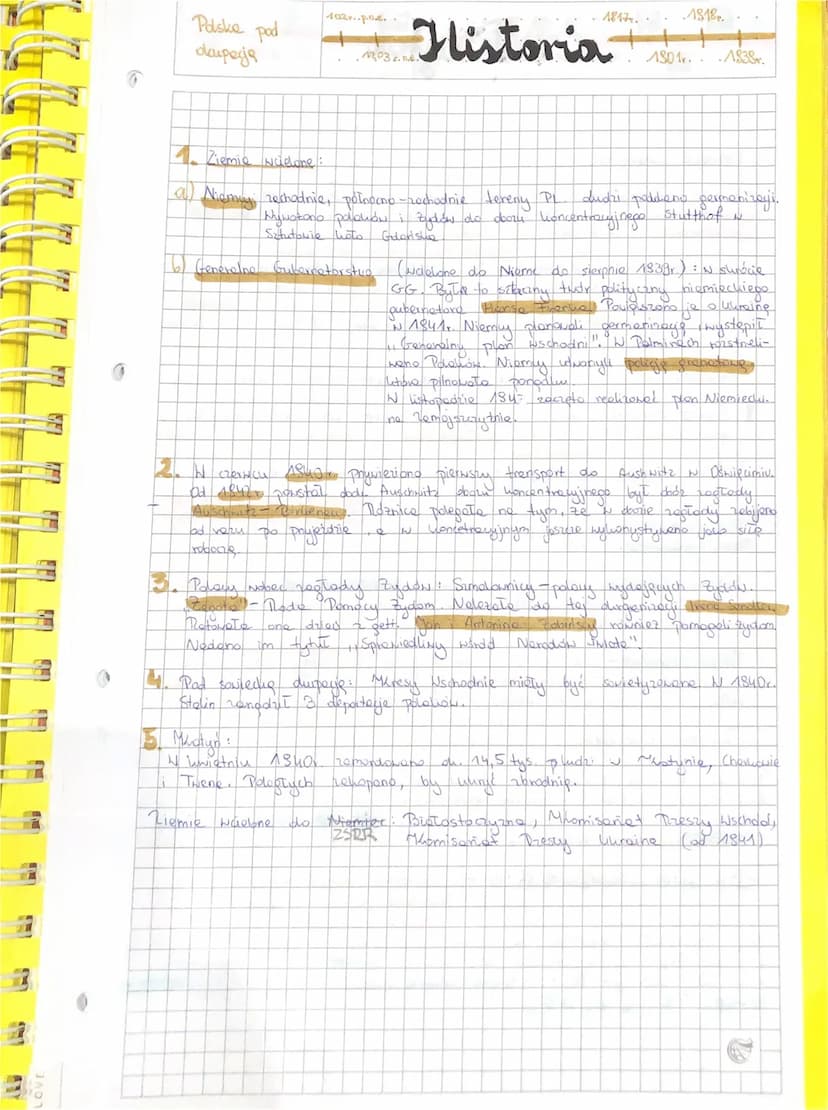 Polska pod
okupacją
Historia
1. Ziemie wcielone:
a) Niemcy: zachodnie, północno-zachodnie tereny PL. Ludzi poddano germanizacji.
Wywożono polaków i żydów do obozu koncentracyjnego Stutthof w
Sztutowie koło Gdańska
b) Generalne Gubernatorstwo (wcielone do Niemc do sierpnia 1939r.): w skrócie
GG. Był to sztuczny twór polityczny niemieckiego
gubernatora Hansa Franka. Powiększono je o Ukrainę
w 1941r. Niemcy planowali germanizację, wystąpił
"Generalny plan wschodni". W Palmirach rozstrzeli-
wano Polaków. Niemcy utworzyli policję granatową,
która pilnowała porządku.
W listopadzie zaczęto realizować plan Niemiecki
na Zamojszczyźnie.
2. W czerwcu 1940r. przywieziono pierwszy transport do Aushwitz w Oświęcimiu.
Od 1942r. powstał Auschwitz obozu koncentracyjnego był obóz zagłady
Auschwitz-Birkenau. Różnica polegała na tym, że w obozie zagłady zabijano
od razu po przyjeździe, a w koncetracyjnym jeszcze wykorzystywano jako siłę
roboczą.
3. Polacy wobec zagłady Żydów: Szmalcownicy-polacy wydających Żydów.
"Żegota" - Rada Pomocy Żydom. Należała do tej organizacji Irena Sendler.
Ratowała ona dzieci z gett. Jan i Antonina Żabińscy również pomagali żydom.
Nadano im tytuł "Sprawiedliwy wśród Narodów Świata".
4. Pod sowiecką okupacją: Kresy Wschodnie miały być sowietyzowane. W 1940r.
Stalin zarządził 3 deportacje polaków.
5. Katyń:
W kwietniu 1940r. zamordowano ok. 14,5 tys. ludzi w Katynie, Charkowie
i Twerze. Poległych zakopano, by ukryć zbrodnię.
Ziemie wcielone do Niemiec: Białostoczyzna, Komisariat Rzeszy Wschód,
ZSRR Komisariat Rzeszy Ukraina (od 1941)
LOVE